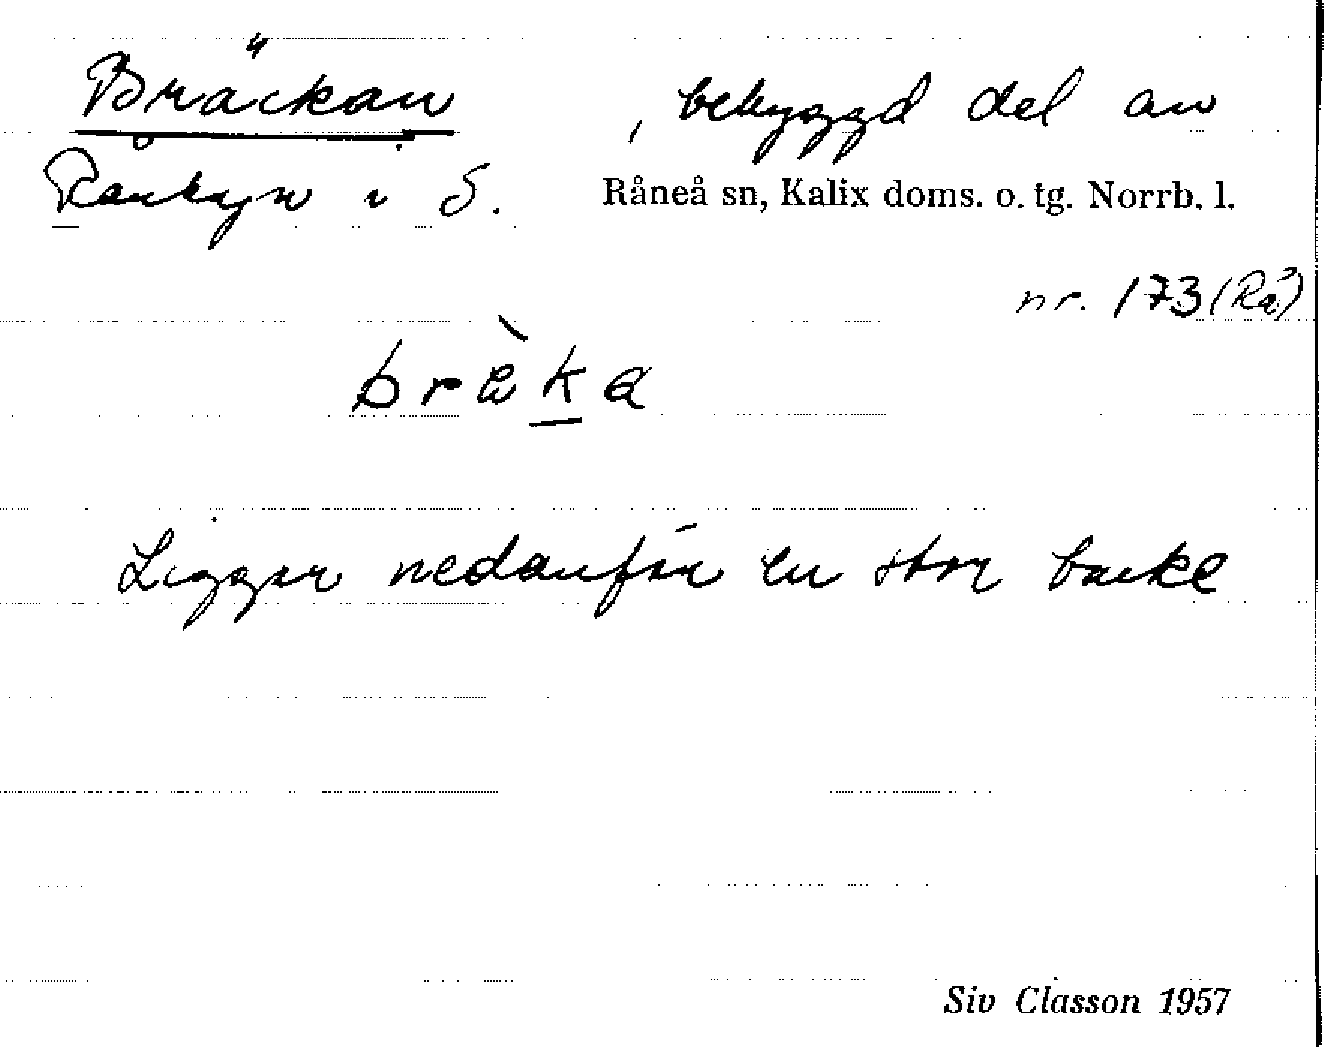 Bräckan, bebyggd del av
Rånbyn i S. Råneå sn, Kalix doms. o. tg. Norrb. l.
nr. 173 (Rå)
bræ̀ka
Ligger nedanför en stor backe
Siv Classon 1957